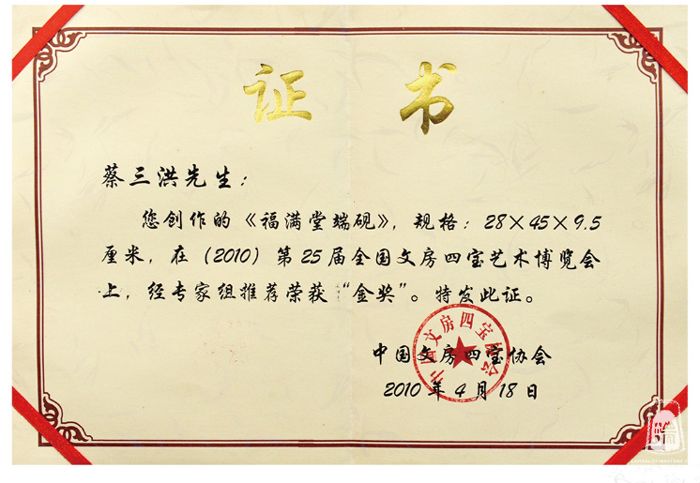 证 书
蔡三洪先生：
您创作的《福满堂端砚》，规格：28×45×9.5
厘米，在（2010）第25届全国文房四宝艺术博览会
上，经专家组推荐荣获“金奖”。特发此证。
中国文房四宝协会
中国文房四宝协会
2010 年 4 月 18 日